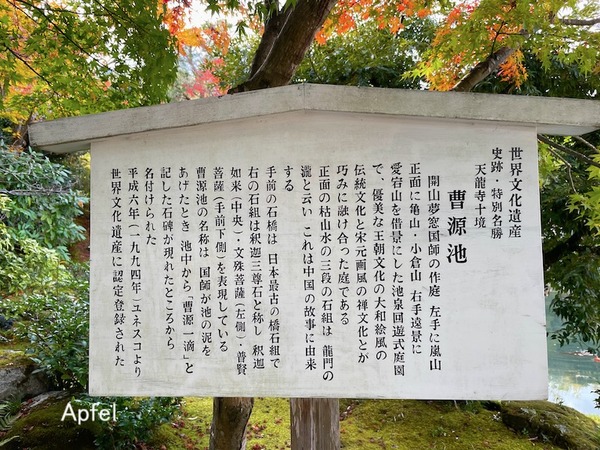 世界文化遺産
史跡・特別名勝
天龍寺十境
曹源池
開山夢窓国師の作庭 左手に嵐山
正面に亀山・小倉山 右手遠景に
愛宕山を借景にした池泉回遊式庭園
で、優美な王朝文化の大和絵風の
伝統文化と宋元画風の禅文化とが
巧みに融け合った庭である
正面の枯山水の三段の石組は 龍門の
瀧と云い これは中国の故事に由来
する
手前の石橋は 日本最古の橋石組で
右の石組は釈迦三尊石と称し 釈迦
如来（中央）・文殊菩薩（左側）・普賢
菩薩（手前下側）を表現している
曹源池の名称は 国師が池の泥を
あげたとき 池中から「曹源一滴」と
記した石碑が現れたところから
名付けられた
平成六年（一九九四年）ユネスコより
世界文化遺産に認定登録された
Apfel